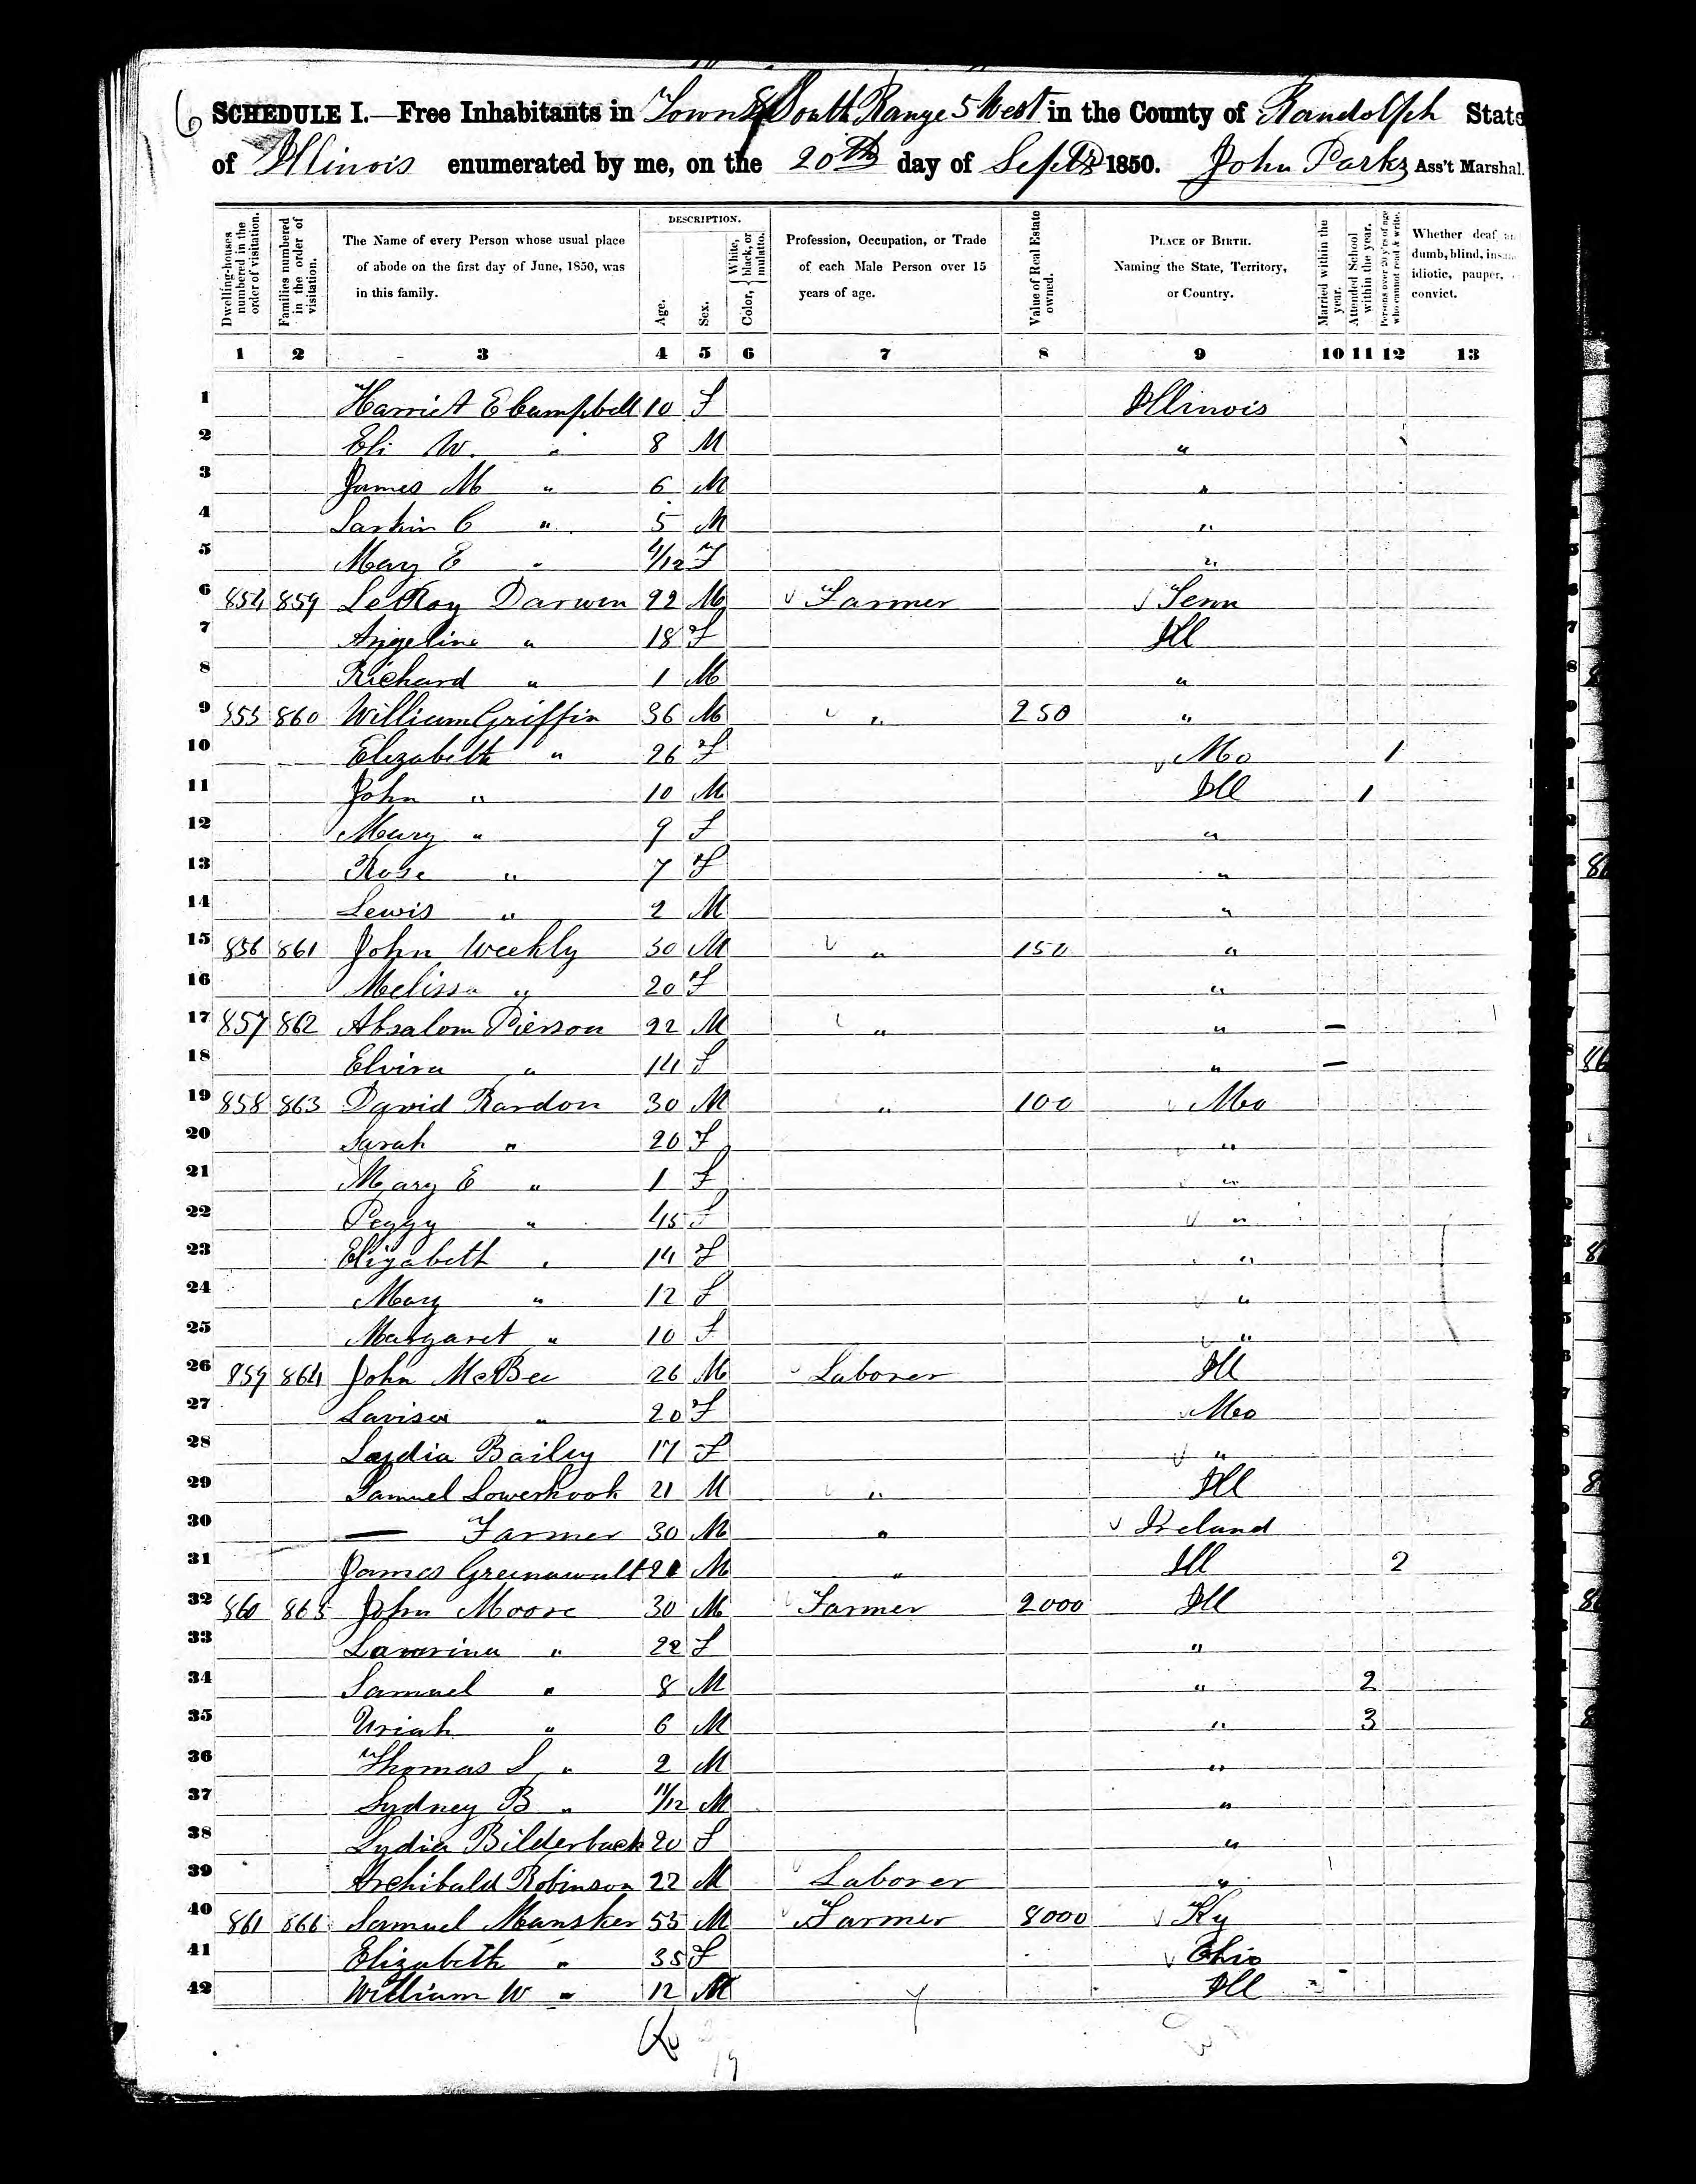 6
SCHEDULE I.—Free Inhabitants in Town 8 South Range 5 West in the County of Randolph State
of Illinois enumerated by me, on the 20th day of Septr 1850. John Parks Ass't Marshal.
Dwelling-houses numbered in the order of visitation.
Families numbered in the order of visitation.
The Name of every Person whose usual place of abode on the first day of June, 1850, was in this family.
DESCRIPTION.
Age.
Sex.
Color, White, black, or mulatto.
Profession, Occupation, or Trade of each Male Person over 15 years of age.
Value of Real Estate owned.
PLACE OF BIRTH. Naming the State, Territory, or Country.
Married within the year.
Attended School within the year.
Persons over 20 y'rs of age who cannot read & write.
Whether deaf dumb, blind, idiotic, pauper, convict.
1 2 3 4 5 6 7 8 9 10 11 12 13
1 Harriet E Campbell 10 F Illinois
2 Eli W. " 8 M "
3 James M " 6 M "
4 Larkin C " 5 M "
5 Mary E " /12 F "
6 854 859 LeRoy Darwen 22 M Farmer Tenn
7 Angeline " 18 F Ill
8 Richard " 1 M "
9 855 860 William Griffin 36 M " 250 "
10 Elizabeth " 26 F Mo 1
11 John " 10 M Ill 1
12 Mary " 9 F "
13 Rose " 7 F "
14 Lewis " 2 M "
15 856 861 John Weekly 30 M " 150 "
16 Melissa " 20 F "
17 857 862 Absalom Pierson 22 M " " —
18 Elvira " 14 F " —
19 858 863 David Rardon 30 M " 100 Mo
20 Sarah " 20 F "
21 Mary E " 1 F "
22 Peggy " 45 F "
23 Elizabeth " 14 F "
24 Mary " 12 F "
25 Margaret " 10 F "
26 859 864 John McBee 26 M Laborer Ill
27 Lavisa " 20 F Mo
28 Lydia Bailey 17 F "
29 Samuel Lowerhook 21 M " Ill
30 — Farmer 30 M " Ireland
31 James Greenawalt 21 M " Ill 2
32 860 865 John Moore 30 M Farmer 2000 Ill
33 " 22 F "
34 Samuel " 8 M " 2
35 Uriah " 6 M " 3
36 Thomas S " 2 M "
37 Sydney B " 11/12 M "
38 Lydia Bilderback 20 F "
39 Archibald Robinson 22 M Laborer "
40 861 866 Samuel Mansker 53 M Farmer 8000 Ky
41 Elizabeth " 35 F Ohio
42 William W " 12 M Ill